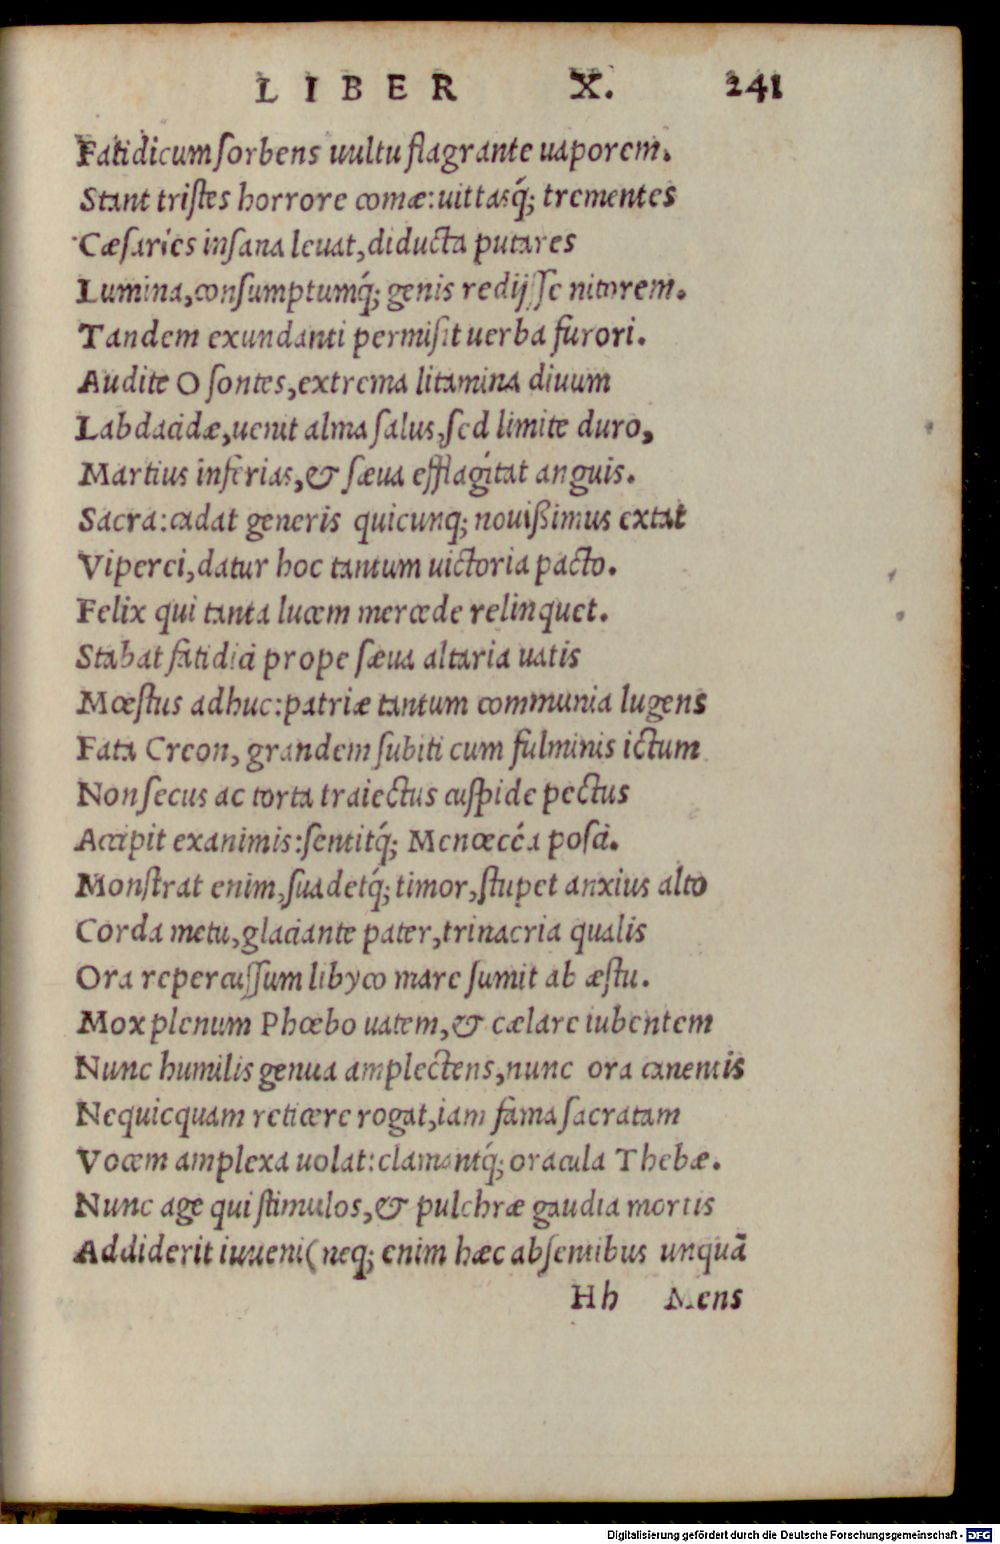 LIBER X. 241
Fatidicum sorbens uultu flagrante uaporem.
Stant tristes horrore comæ: uittasq́; trementes
Cæsaries insana leuat, diducta putares
Lumina, consumptumq́; genis redijsse nitorem.
Tandem exundanti permisit uerba furori.
Audite O sontes, extrema litamina diuum
Labdacidæ, uenit alma salus, sed limite duro,
Martius inferias, & sæua efflagitat anguis.
Sacra: cadat generis quicunq; nouißimus extat
Viperei, datur hoc tantum uictoria pacto.
Felix qui tanta lucem mercede relinquet.
Stabat fatidici prope sæua altaria uatis
Mœstus adhuc: patriæ tantum communia lugens
Fata Creon, grandem subiti cum fulminis ictum
Non secus ac torta traiectus cuspide pectus
Accipit exanimis: sentitq́; Menœcéa posci.
Monstrat enim, suadetq́; timor, stupet anxius alto
Corda metu, glaciante pater, trinacria qualis
Ora repercussum libyco mare sumit ab æstu.
Mox plenum Phœbo uatem, & cælare iubentem
Nunc humilis genua amplectens, nunc ora canentis
Nequicquam reticere rogat, iam fama sacratam
Vocem amplexa uolat: clamantq́; oracula Thebæ.
Nunc age qui stimulos, & pulchræ gaudia mortis
Addiderit iuueni (neq; enim hæc absentibus unquā
Hh Mens
Digitalisierung gefördert durch die Deutsche Forschungsgemeinschaft - DFG